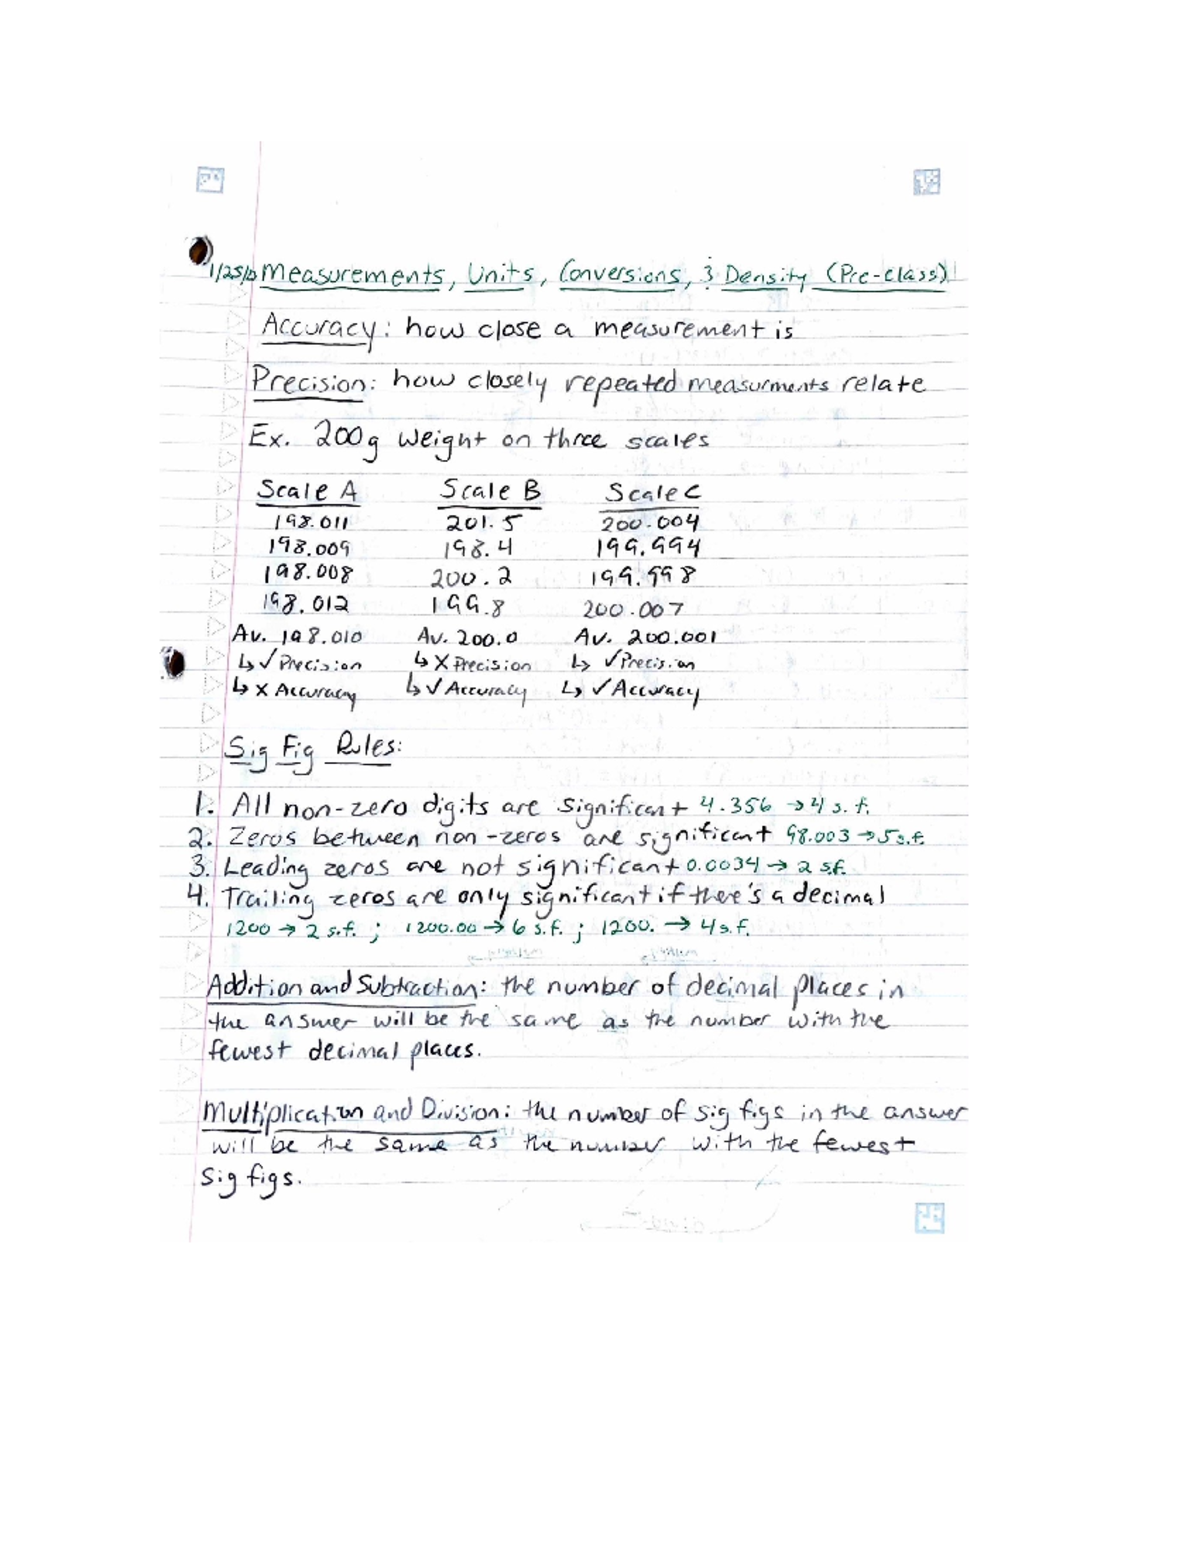 1/25/ Measurements, Units, Conversions, & Density (Pre-class)
Accuracy: how close a measurement is
Precision: how closely repeated measurments relate
Ex. 200g weight on three scales
Scale A Scale B Scale C
198.011 201.5 200.004
198.009 198.4 199.994
198.008 200.2 199.998
198.012 199.8 200.007
Av. 198.010 Av. 200.0 Av. 200.001
↳ ✓ Precision ↳ X Precision ↳ ✓ Precision
↳ X Accuracy ↳ ✓ Accuracy ↳ ✓ Accuracy
Sig Fig Rules:
1. All non-zero digits are significant 4.356 → 4 s.f.
2. Zeros between non-zeros are significant 98.003 → 5 s.f.
3. Leading zeros are not significant 0.0034 → 2 s.f.
4. Trailing zeros are only significant if there's a decimal
1200 → 2 s.f. ; 1200.00 → 6 s.f. ; 1200. → 4 s.f.
Addition and Subtraction: the number of decimal places in
the answer will be the same as the number with the
fewest decimal places.
Multiplication and Division: the number of sig figs in the answer
will be the same as the number with the fewest
sig figs.